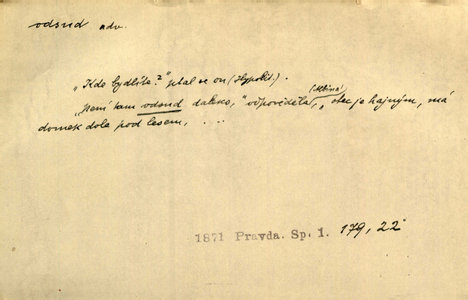 odsud adv.
„Kde bydlíte?" ptal se on (Hypolit).
(Albína)
„Není tam odsud daleko," odpověděla, „otec je hajným, má
domek dole pod lesem, ....
1871 Pravda. Sp. 1. 179, 22